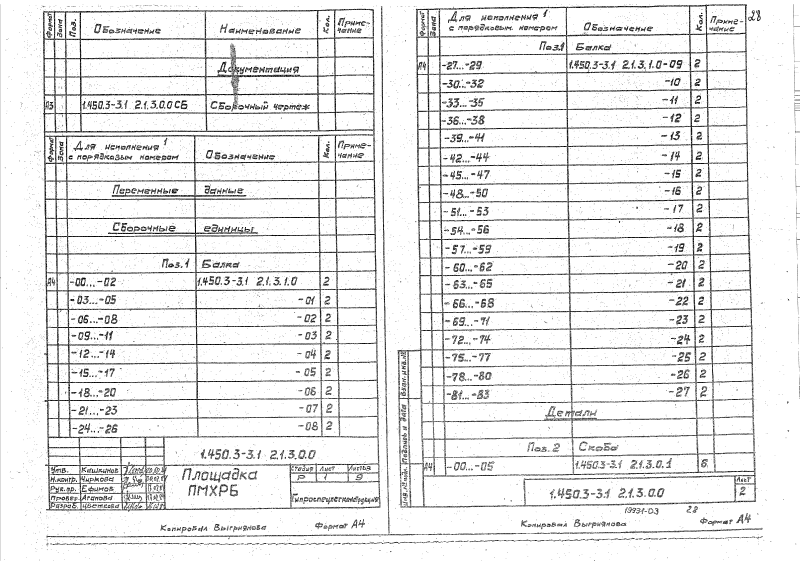 Формат Зона Поз. Обозначение Наименование Кол. Приме-чание
Документация
А3 1.450.3-3.1 2.1.3.0.0 СБ Сборочный чертеж
Формат Зона Для исполнения 1 с порядковым номером Обозначение Кол. Приме-чание
Переменные данные
Сборочные единицы
Поз. 1 Балка
А4 -00...-02 1.450.3-3.1 2.1.3.1.0 2
-03...-05 -01 2
-06...-08 -02 2
-09...-11 -03 2
-12...-14 -04 2
-15...-17 -05 2
-18...-20 -06 2
-21...-23 -07 2
-24...-26 -08 2
1.450.3-3.1 2.1.3.0.0
Утв. Кашкинов
Н.контр. Чиркова
Рук.пр. Ефимов
Провер. Агапова
Разраб. Цветкова
Площадка
ПМХРБ
Стадия Лист Листов
Р 1 9
Гипроспецлегконструкция
Копировал Выгрипнова Формат А4
28
Формат Зона Для исполнения 1 с порядковым номером Обозначение Кол. Приме-чание
Поз.1 Балка
А4 -27...-29 1.450.3-3.1 2.1.3.1.0-09 2
-30...-32 -10 2
-33...-35 -11 2
-36...-38 -12 2
-39...-41 -13 2
-42...-44 -14 2
-45...-47 -15 2
-48...-50 -16 2
-51...-53 -17 2
-54...-56 -18 2
-57...-59 -19 2
-60...-62 -20 2
-63...-65 -21 2
-66...-68 -22 2
-69...-71 -23 2
-72...-74 -24 2
-75...-77 -25 2
-78...-80 -26 2
-81...-83 -27 2
Детали
Поз. 2 Скоба
А4 -00...-05 1.450.3-3.1 2.1.3.0.1 6
Инв.№подл. Подпись и дата Взам.инв.№
1.450.3-3.1 2.1.3.0.0
Лист
2
19931-03 28
Копировал Формат А4